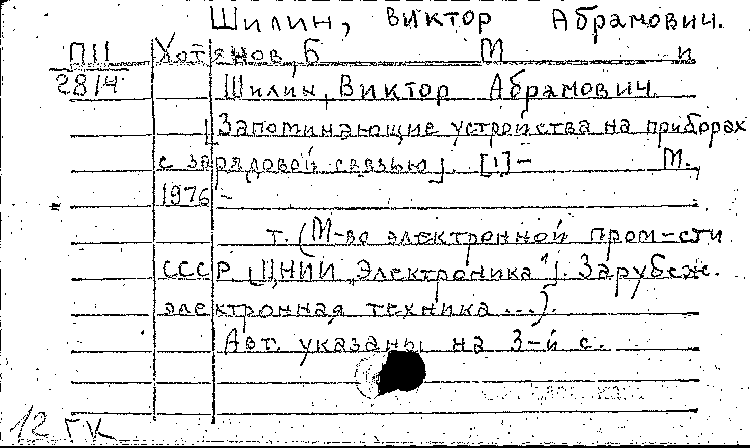 Шилин, Виктор Абрамович.
П11 Хотянов, Б М и
28/4 Шилин, Виктор Абрамович.
[Запоминающие устройства на приборах
с зарядовой связью]. [1]- М.,
1976 -
т. (М-во электронной пром-сти
СССР. ЦНИИ „Электроника"]. Зарубеж.
электронная техника ...).
Авт. указаны на 3-й с.
12 ГК